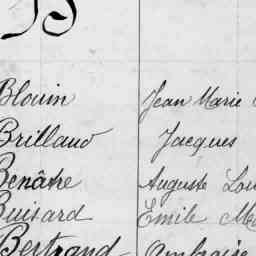 B
Blouin Jean Marie
Brillaud Jacques
Benâtre Auguste Lou
Buisard Emile Ma
Bertrand Ambroise